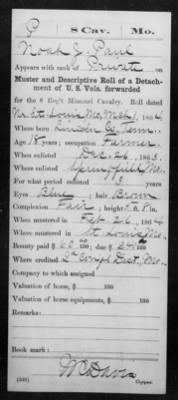 P | 8 Cav. | Mo.
Noah J. Paul
Appears with rank of Private on
Muster and Descriptive Roll of a Detach-
ment of U. S. Vols. forwarded
for the 8 Reg't Missouri Cavalry. Roll dated
St. Louis Mo, Mch 1, 1864
Where born Lincoln Co, Tenn.
Age 18 years; occupation Farmer
When enlisted Dec. 24, 1863.
Where enlisted Springfield, Mo.
For what period enlisted 3 years.
Eyes Blue; hair Brown
Complexion Fair; height 5 ft. in.
When mustered in Feb. 26, 1864
Where mustered in St. Louis, Mo.
Bounty paid $ 60 00/100; due $ 240 00/100
Where credited 2" Cong'l Dist, Mo.
Company to which assigned
Valuation of horse, $ 100
Valuation of horse equipments, $ 100
Remarks:
Book mark:
(339)
W C Davis
Copyist.